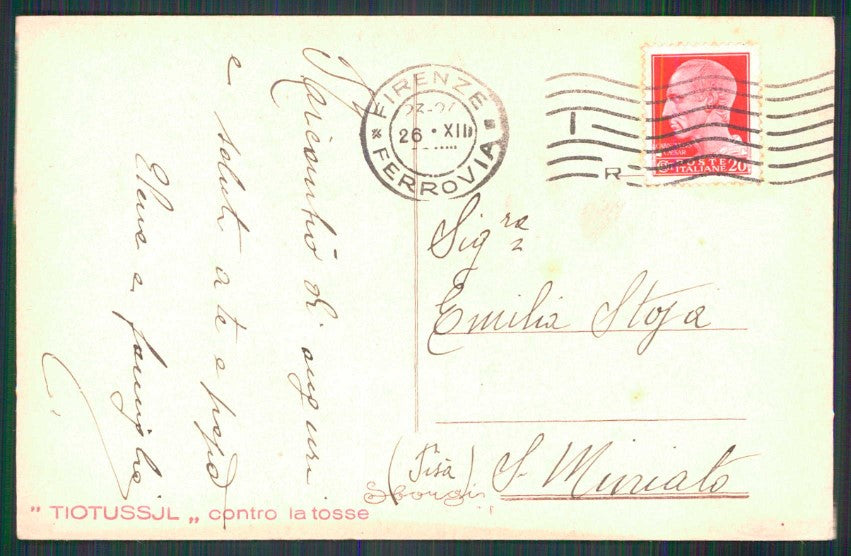 Ricambio di auguri
e saluti a te e papà
Elena e famiglia
FIRENZE
FERROVIA
23-24
26 • XII
I
R
POSTE
ITALIANE 20
Sigra
Emilia Stoja
(Pisa) S. Miniato
Sborgi
" TIOTUSSJL „ contro la tosse